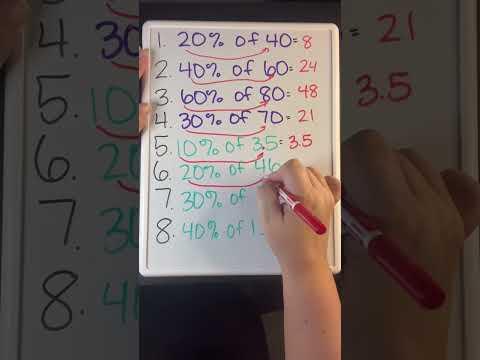 1. 20% of 40= 8
2. 40% of 60= 24
3. 60% of 80= 48
4. 30% of 70= 21
5. 10% of 3.5= 3.5
6. 20% of 46
7. 30% of
8. 40% of 1